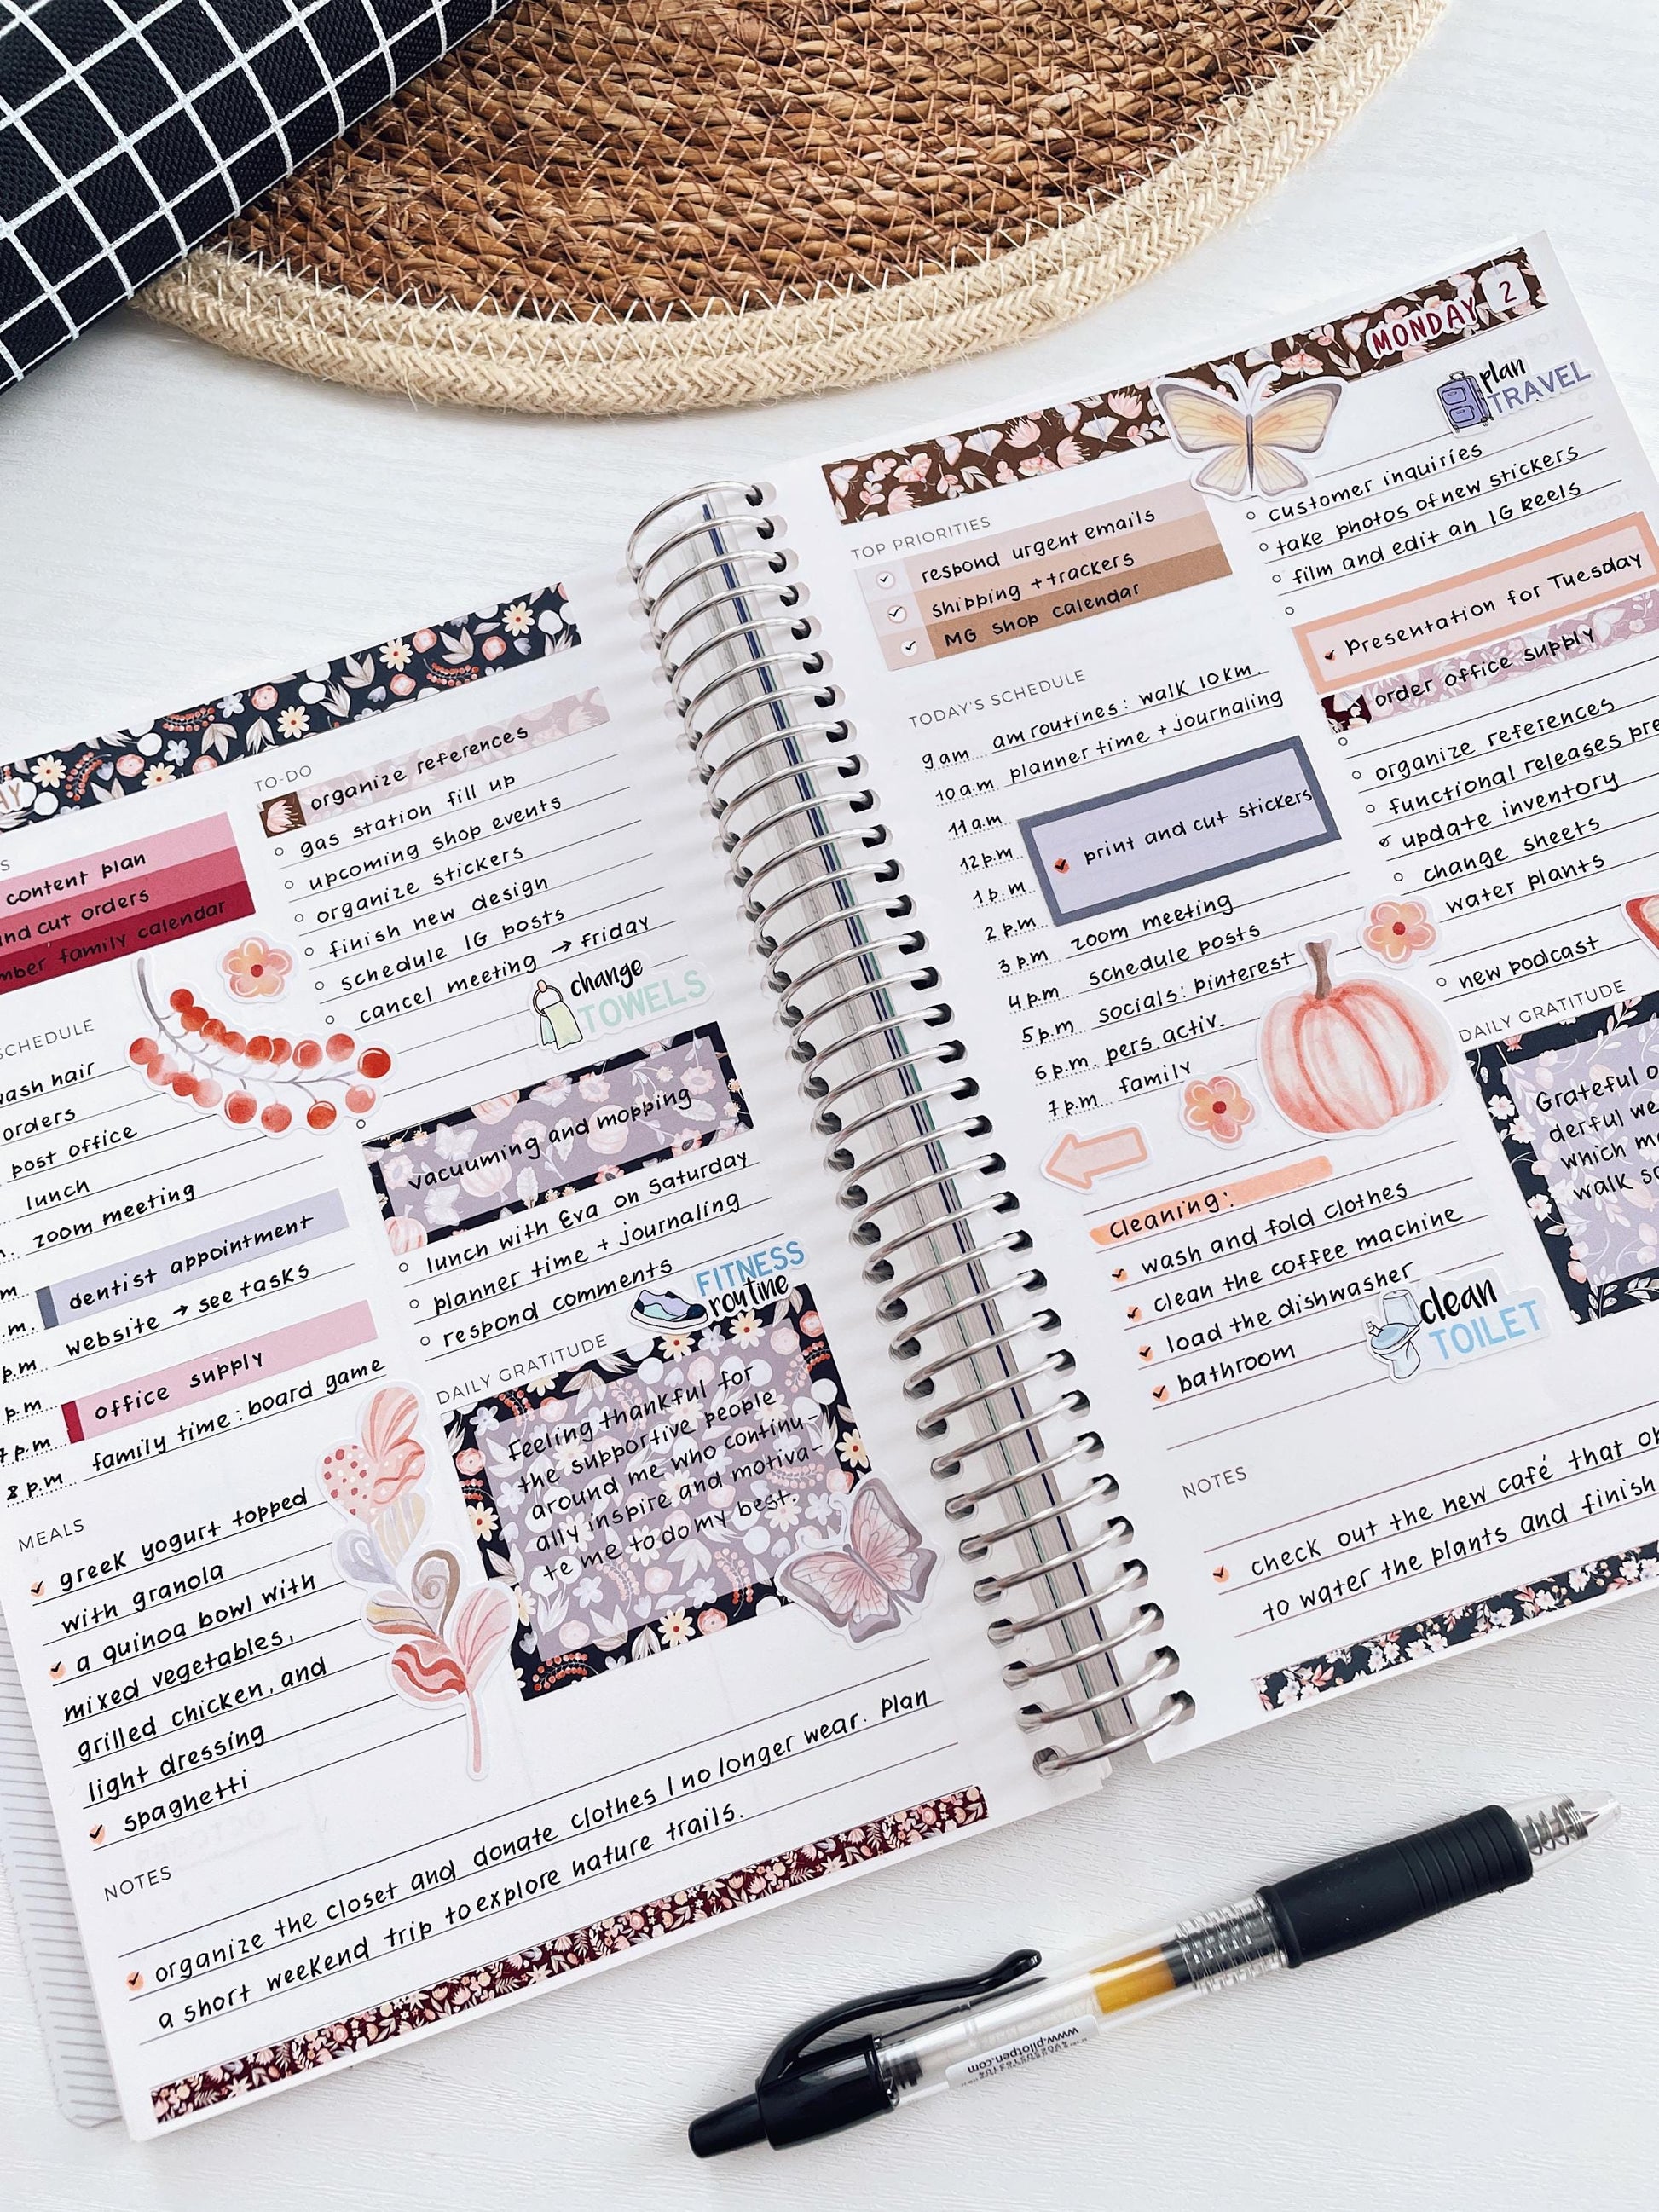 AY
S
content plan
and cut orders
mber family calendar
SCHEDULE
wash hair
orders
post office
lunch
zoom meeting
m. dentist appointment
m. website → see tasks
pm office supply
p.m family time: board game
7 p.m
8 p.m.
MEALS
greek yogurt topped
with granola
a quinoa bowl with
mixed vegetables,
grilled chicken, and
light dressing
spaghetti
NOTES
organize the closet and donate clothes I no longer wear. plan
a short weekend trip to explore nature trails.
TO-DO
organize references
gas station fill up
upcoming shop events
organize stickers
finish new design
schedule IG posts
cancel meeting → Friday
change
TOWELS
vacuuming and mopping
lunch with Eva on Saturday
planner time + journaling
respond comments
FITNESS
routine
DAILY GRATITUDE
Feeling thankful for
the supportive people
around me who continu-
ally inspire and motiva-
te me to do my best.
MONDAY 2
TOP PRIORITIES
respond urgent emails
shipping + trackers
MG shop calendar
TODAY'S SCHEDULE
9 am am routines: walk 10km.
10 a.m planner time + journaling
11 a.m
12 p.m print and cut stickers
1 p.m
2 p.m. zoom meeting
3 p.m schedule posts
4 p.m socials: pinterest
5 p.m pers. activ.
6 p.m. family
7 p.m.
cleaning:
wash and fold clothes
clean the coffee machine
load the dishwasher
bathroom
clean
TOILET
NOTES
check out the new café that
to water the plants and finish
plan
TRAVEL
customer inquiries
take photos of new stickers
film and edit an IG reels
presentation for Tuesday
order office supply
organize references
functional releases pre
update inventory
change sheets
water plants
new podcast
DAILY GRATITUDE
Grateful
derful we
which
walk
www.pilotpen.com